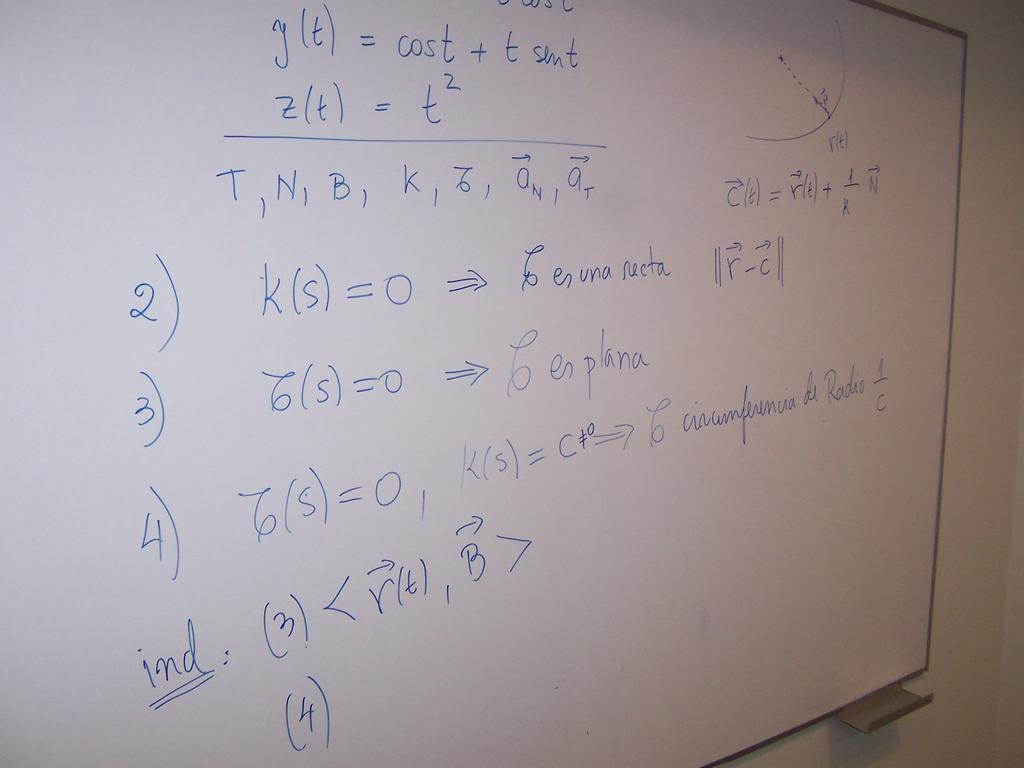 cost
y(t) = cost + t sent
z(t) = t²
T, N, B, K, τ, a⃗_N, a⃗_T
r(t)
c⃗(t) = r⃗(t) + 1/K N⃗
2) K(s) = 0 ⇒ C es una recta ‖r⃗ - c⃗‖
3) τ(s) = 0 ⇒ C es plana
4) τ(s) = 0, K(s) = C ≠ 0 ⇒ C circumferencia de Radio 1/c
ind: (3) < r⃗(t), B⃗ >
(4)